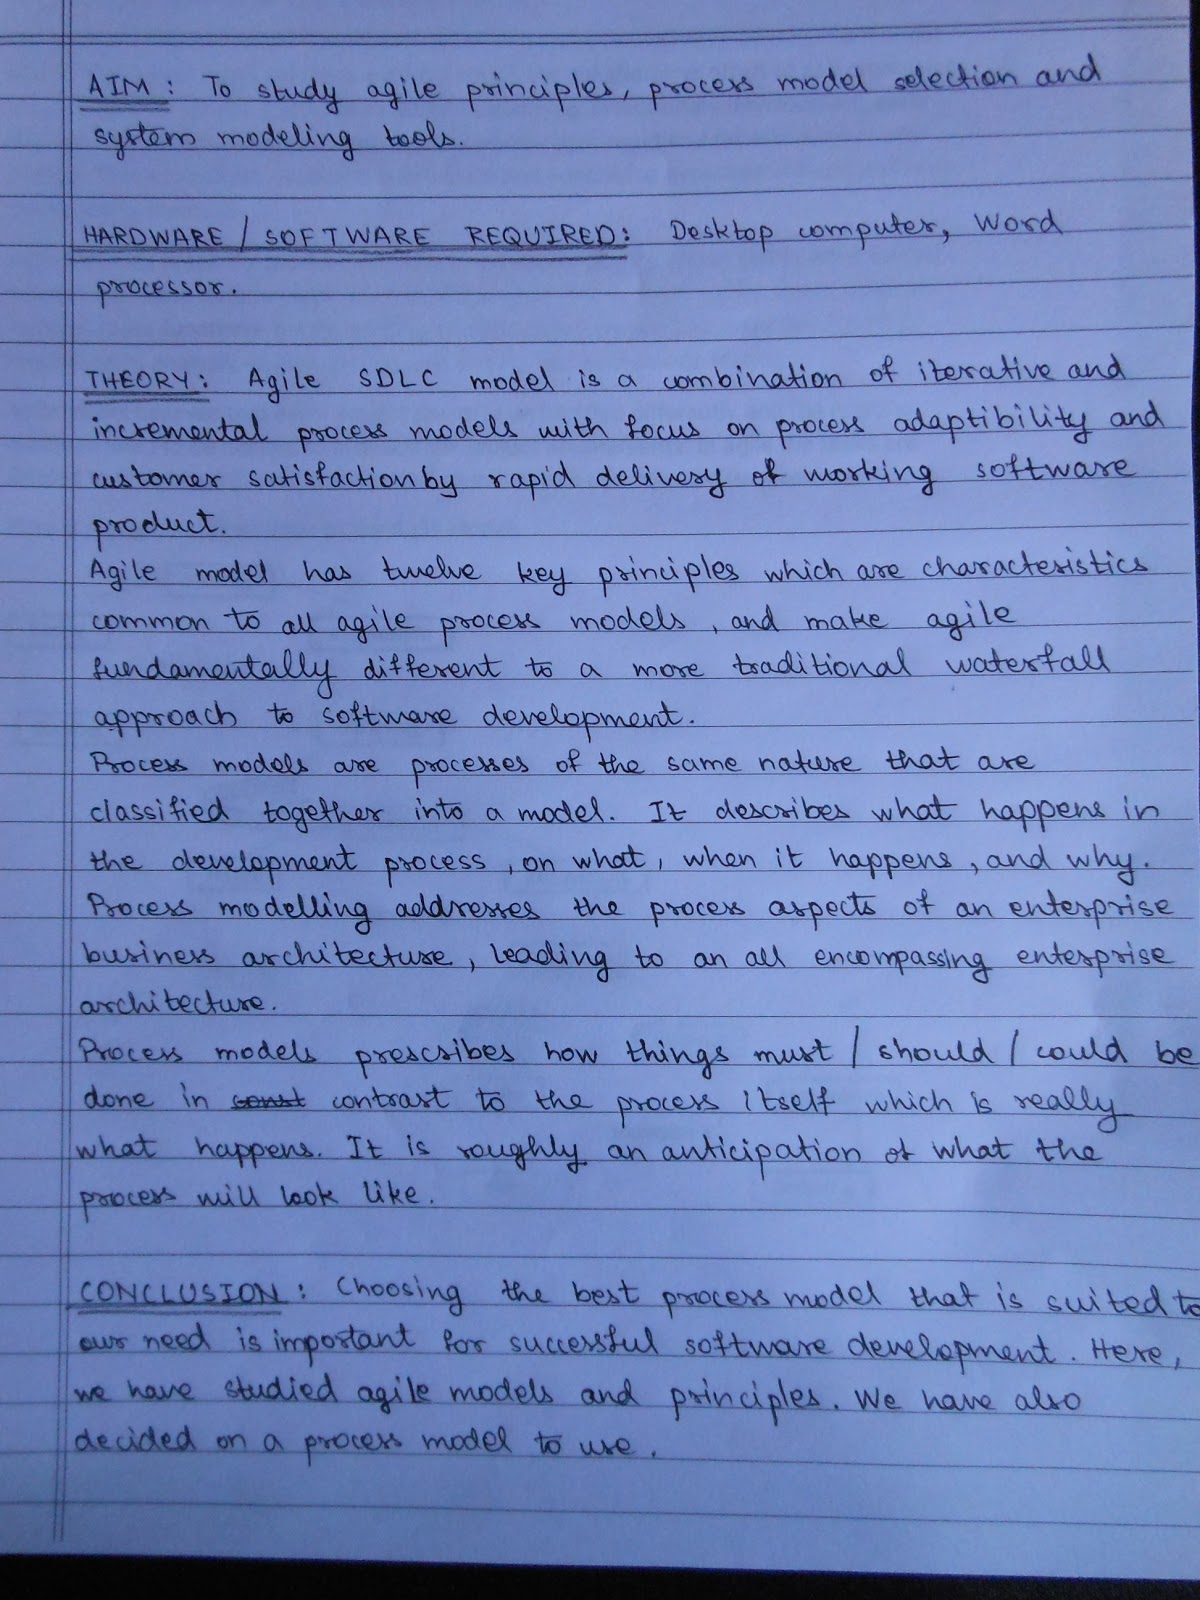 AIM: To study agile principles, process model selection and
system modeling tools.
HARDWARE / SOFTWARE REQUIRED: Desktop computer, Word
processor.
THEORY: Agile SDLC model is a combination of iterative and
incremental process models with focus on process adaptibility and
customer satisfaction by rapid delivery of working software
product.
Agile model has twelve key principles which are characteristics
common to all agile process models, and make agile
fundamentally different to a more traditional waterfall
approach to software development.
Process models are processes of the same nature that are
classified together into a model. It describes what happens in
the development process, on what, when it happens, and why.
Process modelling addresses the process aspects of an enterprise
business architecture, leading to an all encompassing enterprise
architecture.
Process models prescribes how things must / should / could be
done in const contrast to the process itself which is really
what happens. It is roughly an anticipation of what the
process will look like.
CONCLUSION: Choosing the best process model that is suited to
our need is important for successful software development. Here,
we have studied agile models and principles. We have also
decided on a process model to use.